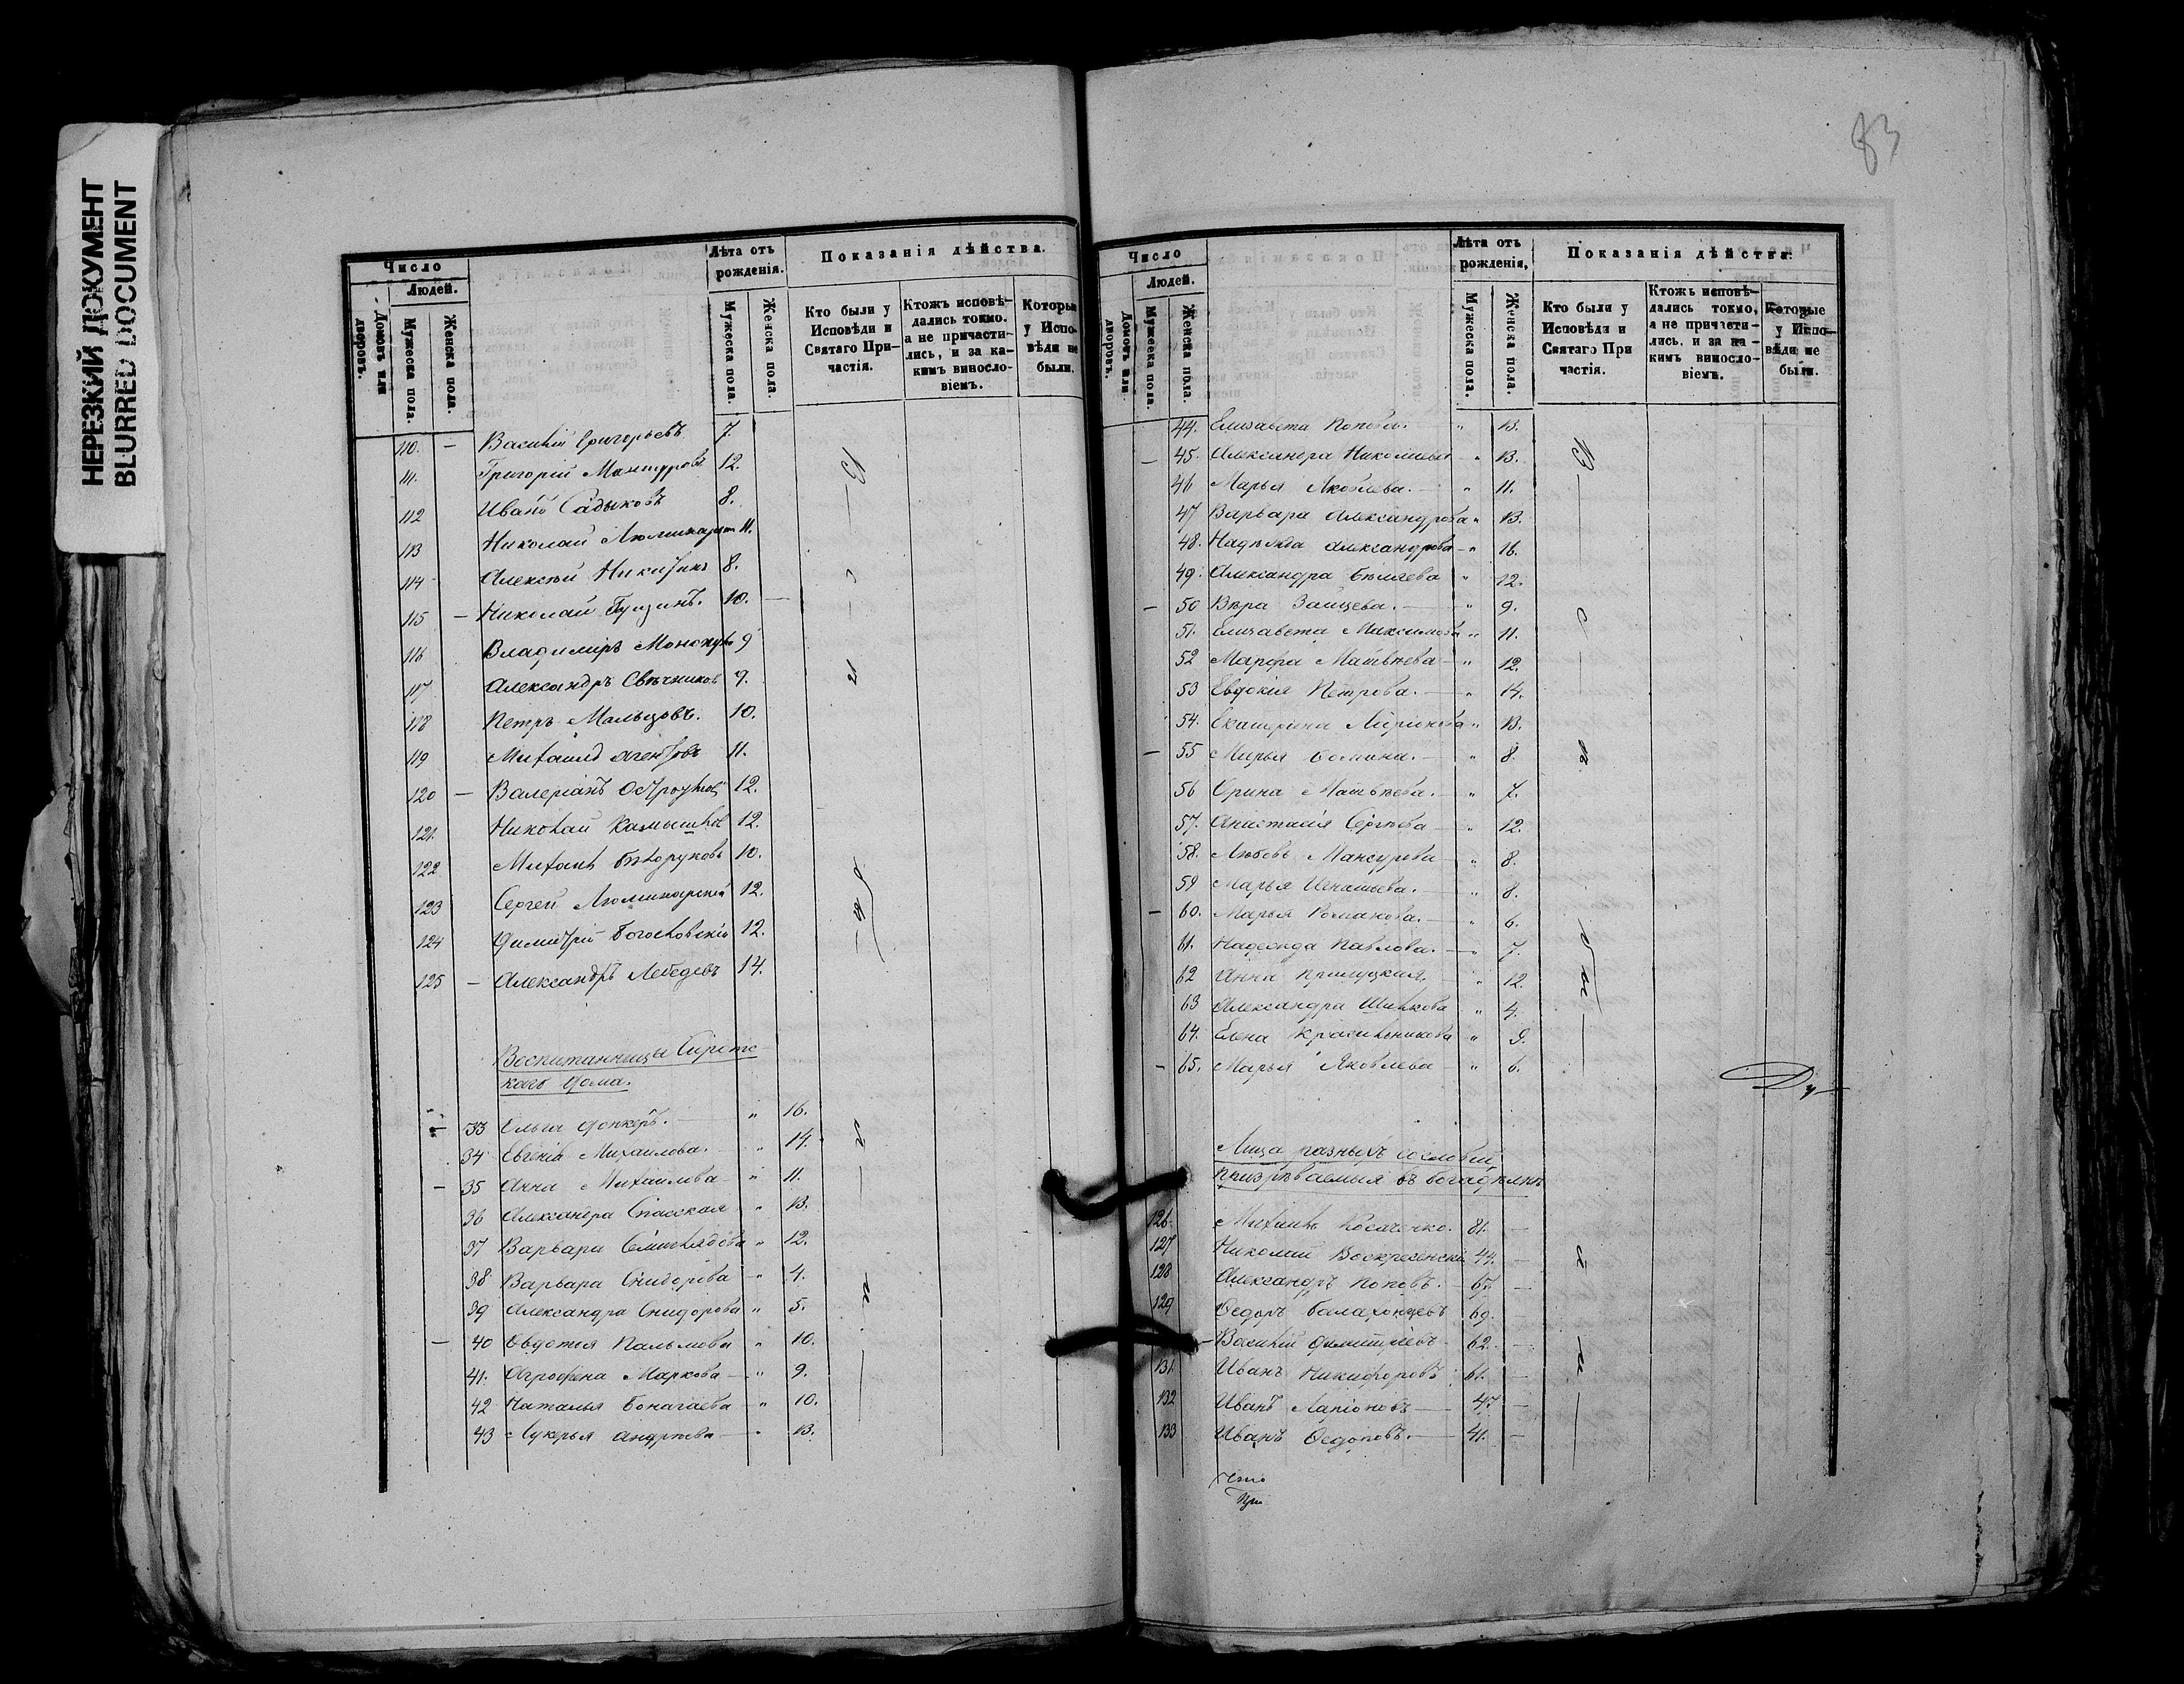 НЕРЕЗКИЙ ДОКУМЕНТ
BLURRED DOCUMENT
83
Число
Людей.
Домовъ или дворовъ.
Мужеска пола.
Женска пола.
Лѣта отъ рожденія.
Мужеска пола.
Женска пола.
Показанія дѣйства.
Кто были у Исповѣди и Святаго Причастія.
Ктожъ исповѣдались токмо. а не причастились, и за какимъ винословіемъ.
Которые у Исповѣди не были.
110. — Василій Григорьевъ 7.
111. Григорій Мансуровъ 12.
112 Иванъ Садыковъ 8.
113 Николай Люминарск 11.
114 Алексѣй Никитинъ 8.
115 — Николай Пузинъ. 10. —
116 Владиміръ 9
117 Александръ Свѣчников 9.
118 Петръ Мальцовъ. 10.
119 Михаилъ Агентовъ 11.
120 — Валеріанъ Остроумовъ 12.
121. Николай Камышков 12.
122 Михаилъ Бѣлоруковъ 10.
123 Сергей Люминарскій 12.
124 Димитрій Богословскій 12.
125 — Александръ Лебедевъ 14.
Воспитанницы Сиротс
каго дома.
33 Ольга 16.
34 Евгенія Михаилова. „ 14.
— 35 Анна Михаилова „ 11.
36 Александра Спасская „ 13.
37 Варвара „ 12.
38 Варвара Снидорова „ 4.
39 Александра Снидорова „ 5.
— 40 Евдотья Пальмова „ 10.
41. Агрофена Маркова „ 9.
42 Наталья Бонагаева „ 10.
43 Лукерья Андреева „ 13.
Число
Людей.
Домовъ или дворовъ.
Мужеска пола.
Женска пола.
Лѣта отъ рожденія,
Мужеска пола.
Женска пола.
Показанія дѣйства.
Кто были у Исповѣди и Святаго Причастія.
Ктожъ исповѣдались токмо, а не причастились. и за какимъ винословіемъ.
Которые у Исповѣди не были.
44. Елизавета Попова. „ 13.
— 45. Александра Николаева „ 13.
46 Марья Яковлева. „ 11.
47 Варвара Александрова „ 13.
48. Надежда Александрова „ 16.
49. Александра Бѣляева „ 12.
— 50 Вѣра Зайцева. „ 9.
51. Елизавета Максимова „ 11.
52 Марфа Матвѣева „ 12.
53 Евдокія Петрова. „ 14.
54. Екатерина „ 13.
— 55 Марья Фомина. „ 8.
56 Ирина Матвѣева. „ 7.
57. Анастасія Сергѣева „ 12.
58. Любовь Мансурова „ 8.
59 Марья Игнатьева. „ 8.
— 60. Марья Романова. „ 6.
61. Надежда Павлова. „ 7.
62 Анна Прилуцкая. „ 12.
63 Александра Шишкова „ 4.
64. Елена Красильникова „ 9.
— 65. Марья Яковлева „ 6.
Ду
Лица разныхъ сословій
призрѣваемыя въ богадѣльнѣ
126. Михаилъ Косаченко. 81. —
127 Николай Воскресенскій 44. —
128 Александръ Поповъ. 67. —
129 Ѳедоръ Балахонцевъ 69. —
— Василій Димитріевъ 62. —
131. Иванъ Никифоровъ 61. —
132 Иванъ Ларіоновъ 47 —
133 Иванъ Ѳедоровъ. 41. —